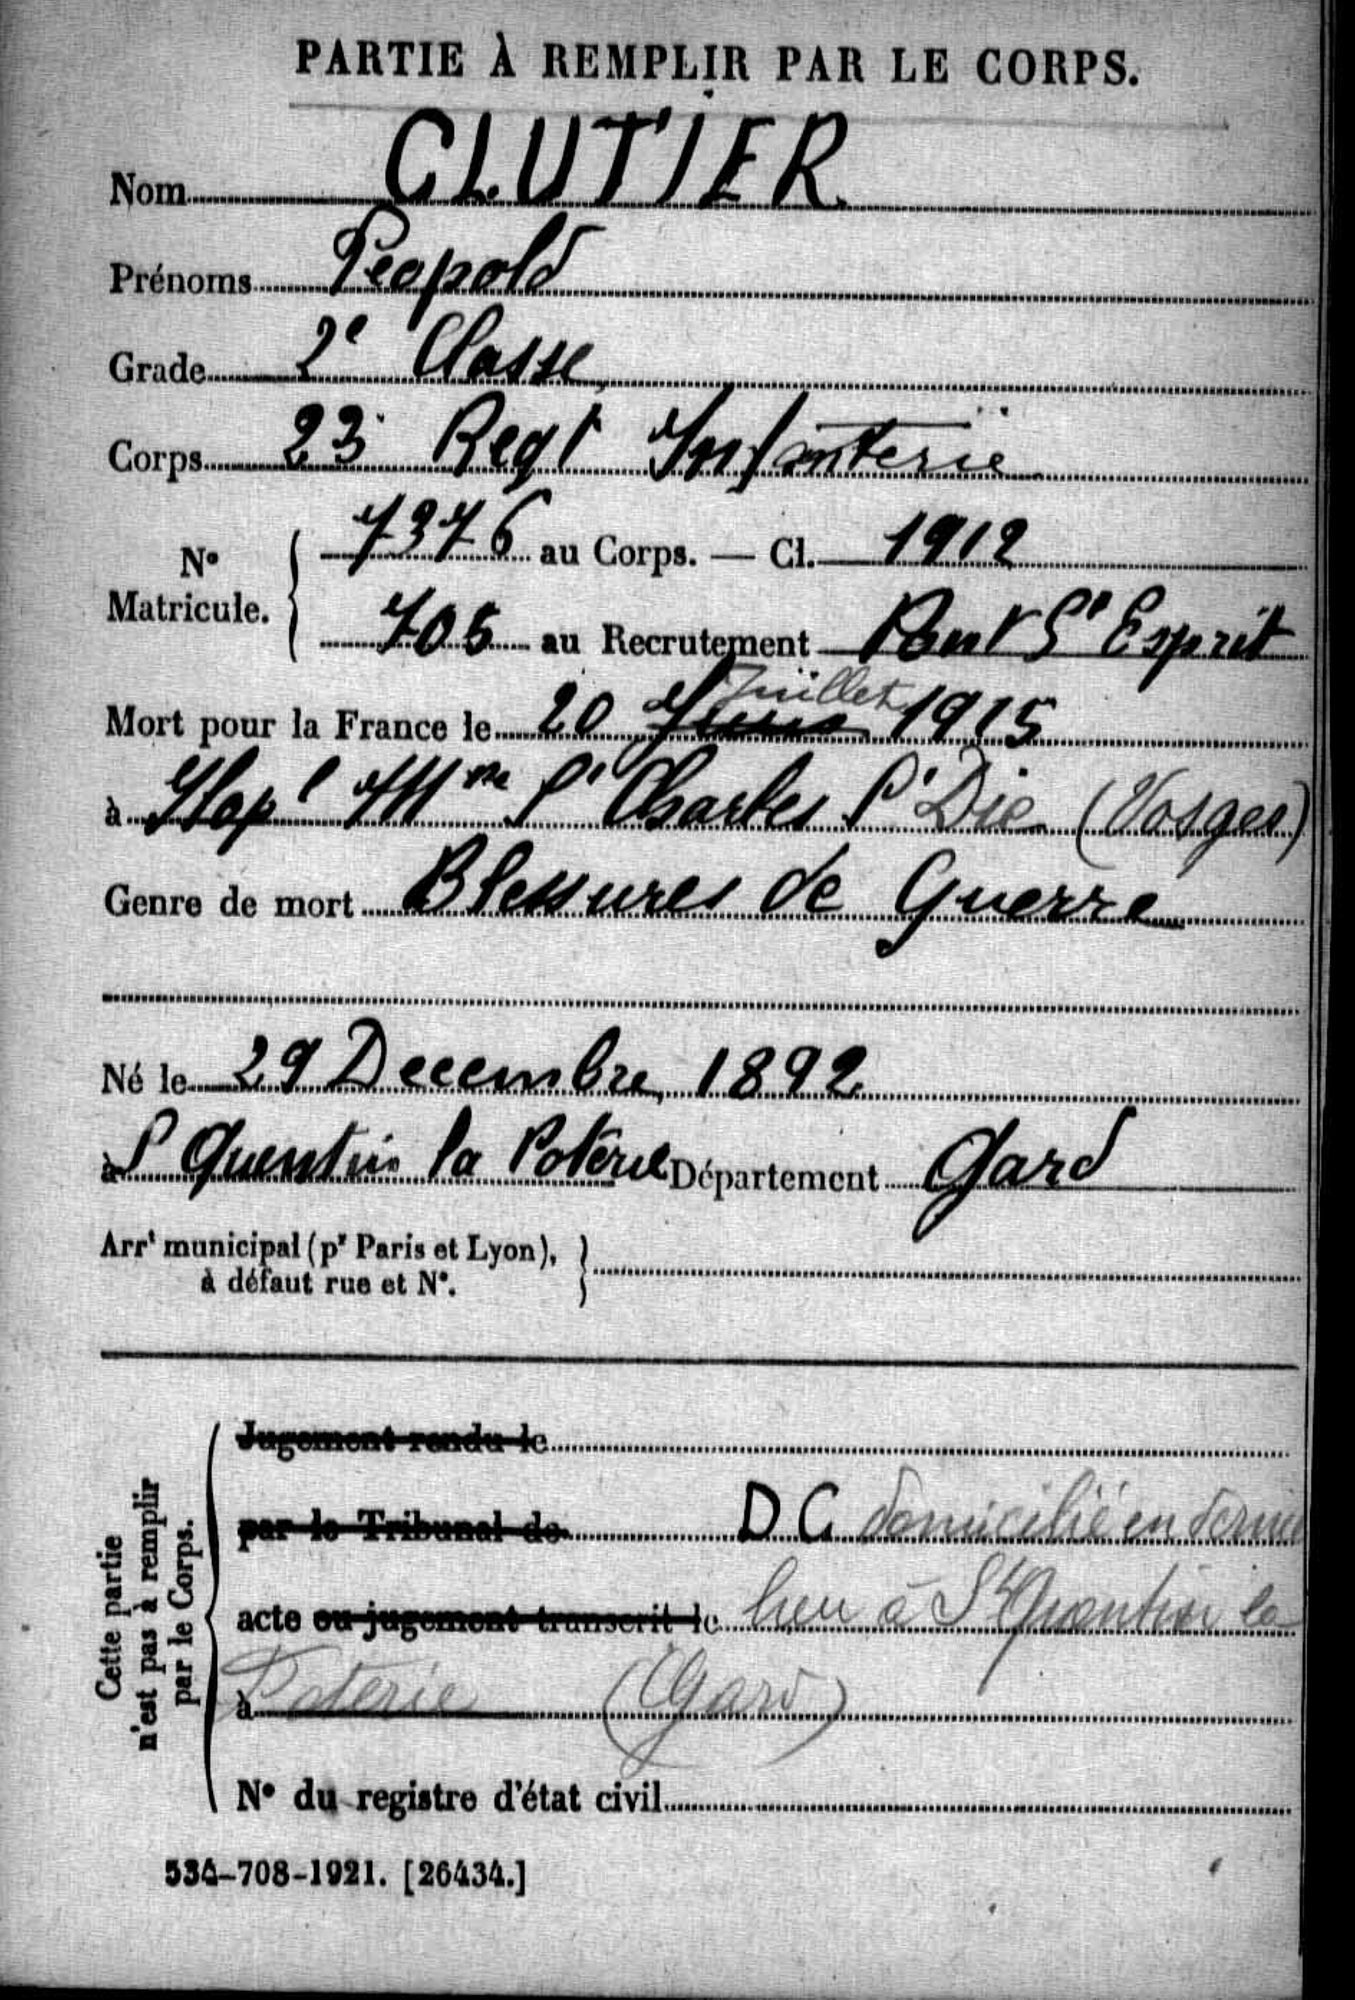 PARTIE À REMPLIR PAR LE CORPS.
Nom CLUTIER
Prénoms Léopold
Grade 2e Classe
Corps 23 Regt Infanterie
N° Matricule. 7376 au Corps. — Cl. 1912
705 au Recrutement Pont St Esprit
Mort pour la France le 20 Juin Juillet 1915
à Hopl Mre St Charles St Die (Vosges)
Genre de mort Blessures de Guerre
Né le 29 Decembre 1892
à St Quentin la Poterie Département Gard
Arrt municipal (pr Paris et Lyon),
à défaut rue et N°.
Cette partie
n'est pas à remplir
par le Corps.
Jugement rendu le
par le Tribunal de DC domicilié en dernier
acte ou jugement transcrit le lieu à St Quentin la
à Poterie (Gard)
N° du registre d'état civil
534-708-1921. [26434.]